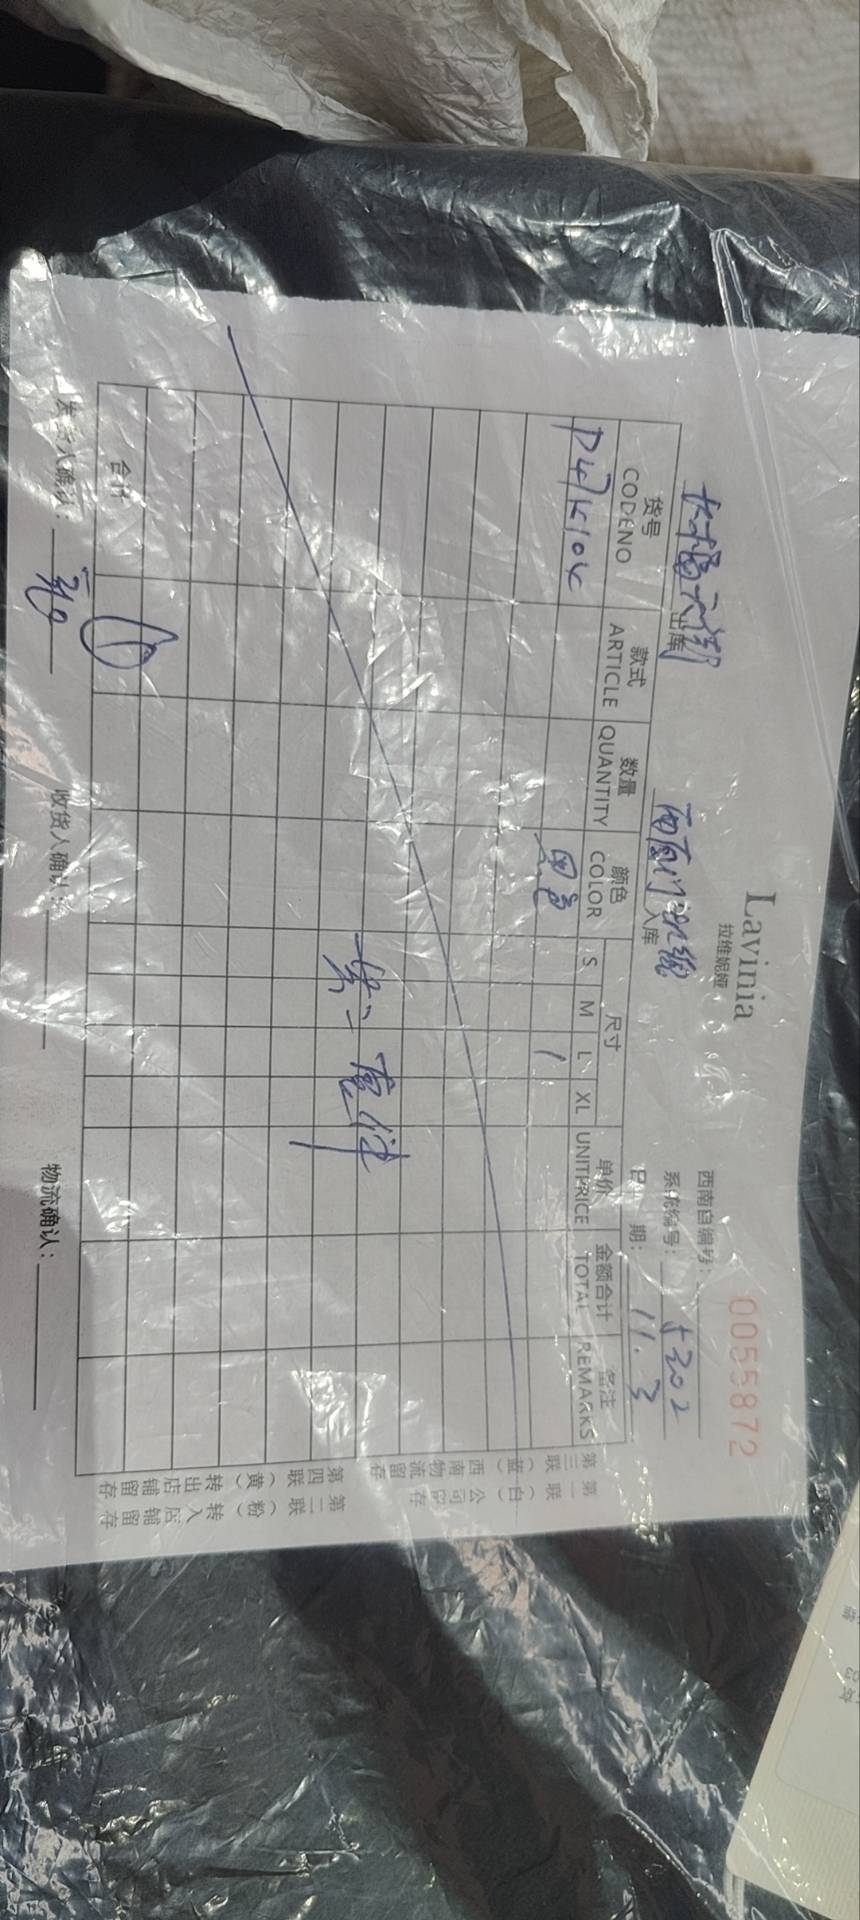 Lavinia
拉维妮娅
0055872
西南自编号:
系统编号: 5202
出库 入库 日 期: 11.3
货号 款式 数量 颜色 尺寸 单价 金额合计 备注
CODENO ARTICLE QUANTITY COLOR S M L XL UNITPRICE TOTAL REMARKS
黑色 1
合计 ①
发货人确认: 收货人确认: 物流确认:
第一联（白）公司留存
第二联（粉）转入店铺留存
第三联（蓝）西南物流留存
第四联（黄）转出店铺留存